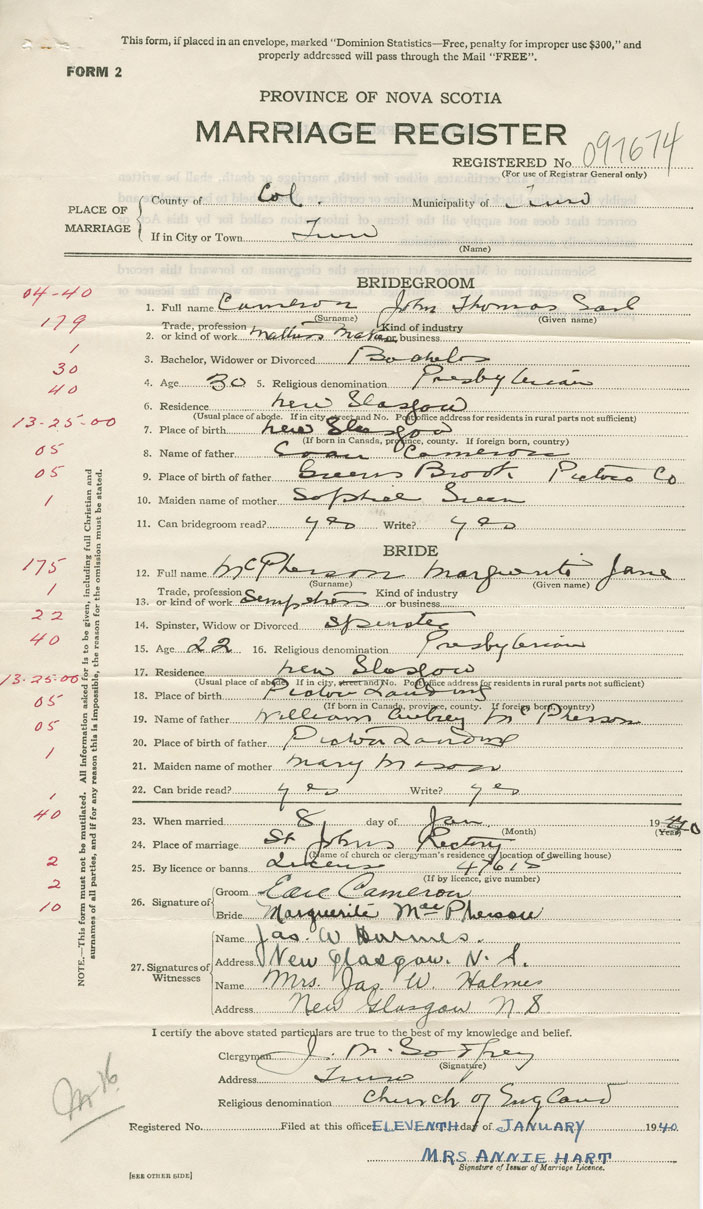 This form, if placed in an envelope, marked "Dominion Statistics—Free, penalty for improper use $300," and
properly addressed will pass through the Mail "FREE".
FORM 2
PROVINCE OF NOVA SCOTIA
MARRIAGE REGISTER
REGISTERED No. 097674
(For use of Registrar General only)
PLACE OF MARRIAGE
County of Col. Municipality of Truro
If in City or Town Truro
(Name)
BRIDEGROOM
04-40
1. Full name Cameron John Thomas Earl
(Surname) (Given name)
179
Trade, profession Kind of industry
2. or kind of work Mattress Maker or business
1
3. Bachelor, Widower or Divorced Bachelor
30
4. Age 30 5. Religious denomination Presbyterian
40
6. Residence New Glasgow
(Usual place of abode. If in city, street and No. Post office address for residents in rural parts not sufficient)
13-25-00
7. Place of birth New Glasgow
(If born in Canada, province, county. If foreign born, country)
05
8. Name of father Evan Cameron
05
9. Place of birth of father Greens Brook Pictou Co
1
10. Maiden name of mother Sophie Green
11. Can bridegroom read? yes Write? yes
BRIDE
175
12. Full name McPherson Marguerite Jane
(Surname) (Given name)
1
Trade, profession Kind of industry
13. or kind of work Sempstress or business
22
14. Spinster, Widow or Divorced Spinster
40
15. Age 22 16. Religious denomination Presbyterian
17. Residence New Glasgow
13-25-00
(Usual place of abode. If in city, street and No. Post office address for residents in rural parts not sufficient)
05
18. Place of birth Pictou Landing
(If born in Canada, province, county. If foreign born, country)
05
19. Name of father William Aubrey McPherson
1
20. Place of birth of father Pictou Landing
21. Maiden name of mother Mary Mason
1
22. Can bride read? yes Write? yes
40
23. When married 8 day of Jan 1940
(Month) (Year)
24. Place of marriage St Johns Rectory
(Name of church or clergyman's residence or location of dwelling house)
2
25. By licence or banns License 47615
(If by licence, give number)
2
26. Signature of
Groom Earl Cameron
10
Bride Marguerite MacPherson
27. Signatures of Witnesses
Name Jas. W
Address New Glasgow. N. S.
Name Mrs. Jas. W. Holmes
Address New Glasgow N S
NOTE.—This form must not be mutilated. All information asked for is to be given, including full Christian and
surnames of all parties, and if for any reason this is impossible, the reason for the omission must be stated.
I certify the above stated particulars are true to the best of my knowledge and belief.
Clergyman J. M. Godfrey
(Signature)
Address Truro
Religious denomination Church of England
Registered No. Filed at this office ELEVENTH day of JANUARY 1940.
MRS ANNIE HART
Signature of Issuer of Marriage Licence.
[SEE OTHER SIDE]